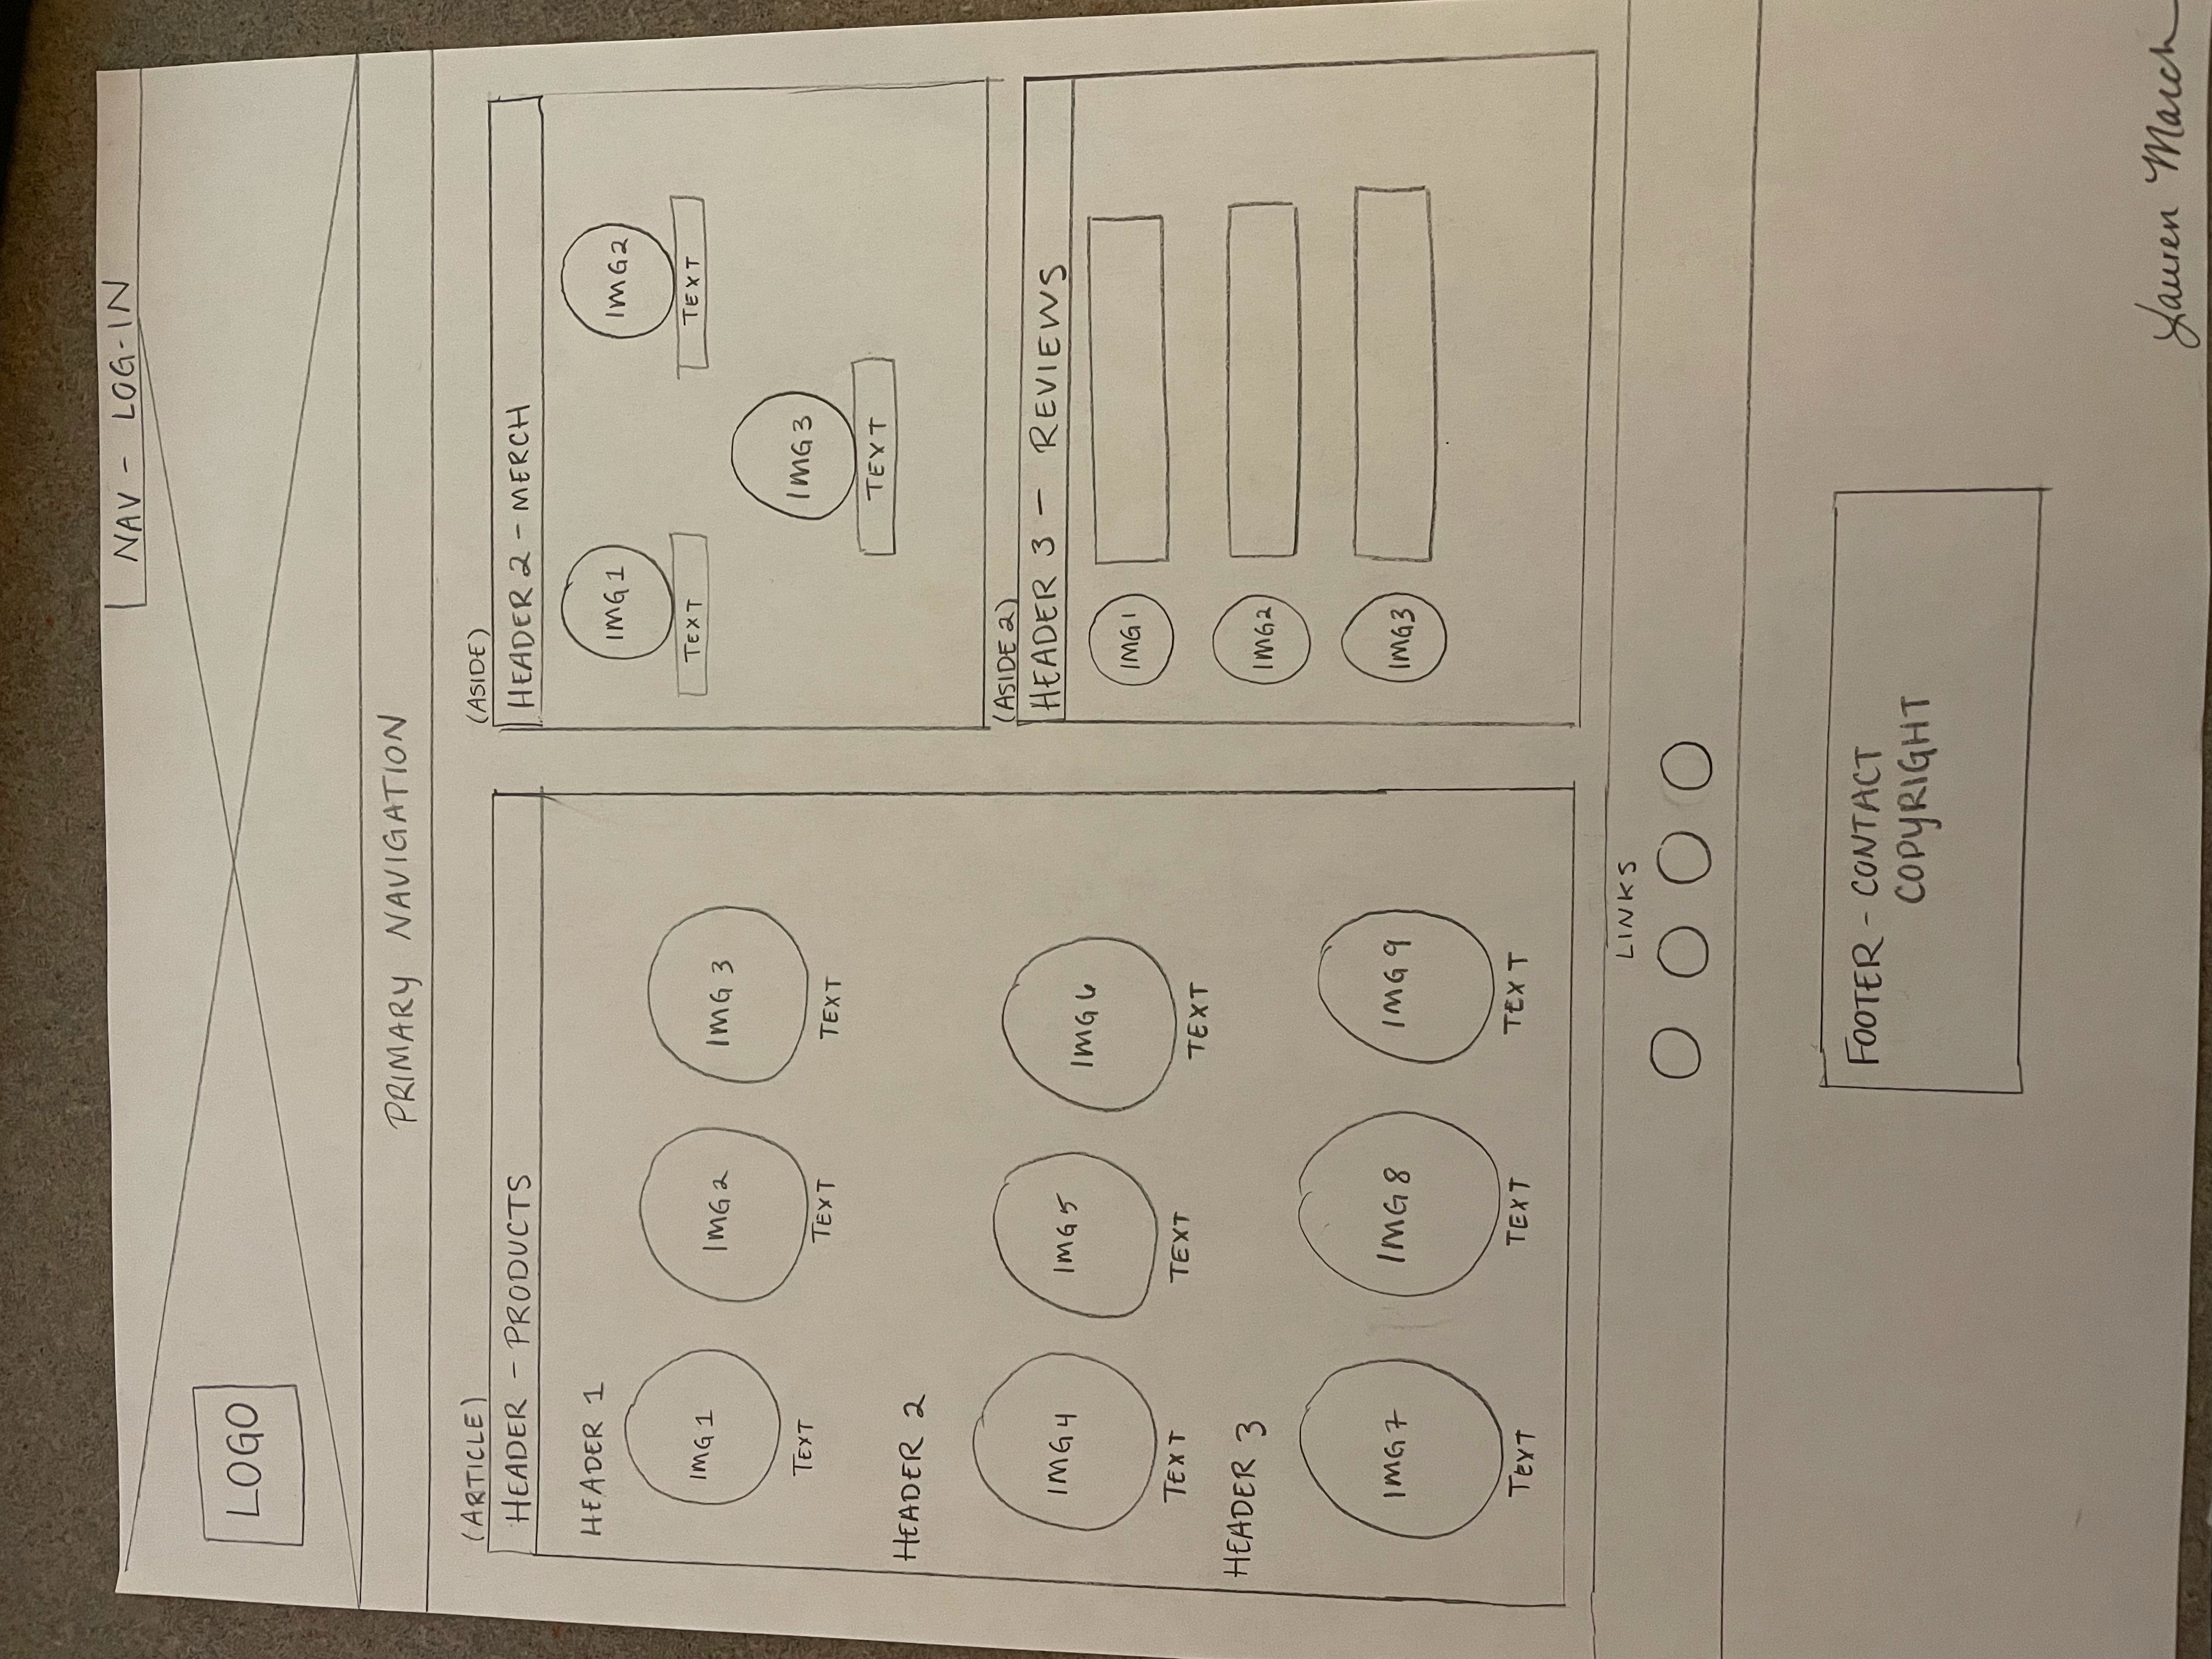 NAV - LOG-IN
LOGO
PRIMARY NAVIGATION
(ARTICLE)
HEADER - PRODUCTS
HEADER 1
IMG 1
IMG 2
IMG 3
TEXT
TEXT
TEXT
HEADER 2
IMG 4
IMG 5
IMG 6
TEXT
TEXT
TEXT
HEADER 3
IMG 7
IMG 8
IMG 9
TEXT
TEXT
TEXT
(ASIDE)
HEADER 2 - MERCH
IMG 1
IMG 2
TEXT
TEXT
IMG 3
TEXT
(ASIDE 2)
HEADER 3 - REVIEWS
IMG 1
IMG 2
IMG 3
LINKS
FOOTER - CONTACT
COPYRIGHT
Lauren March